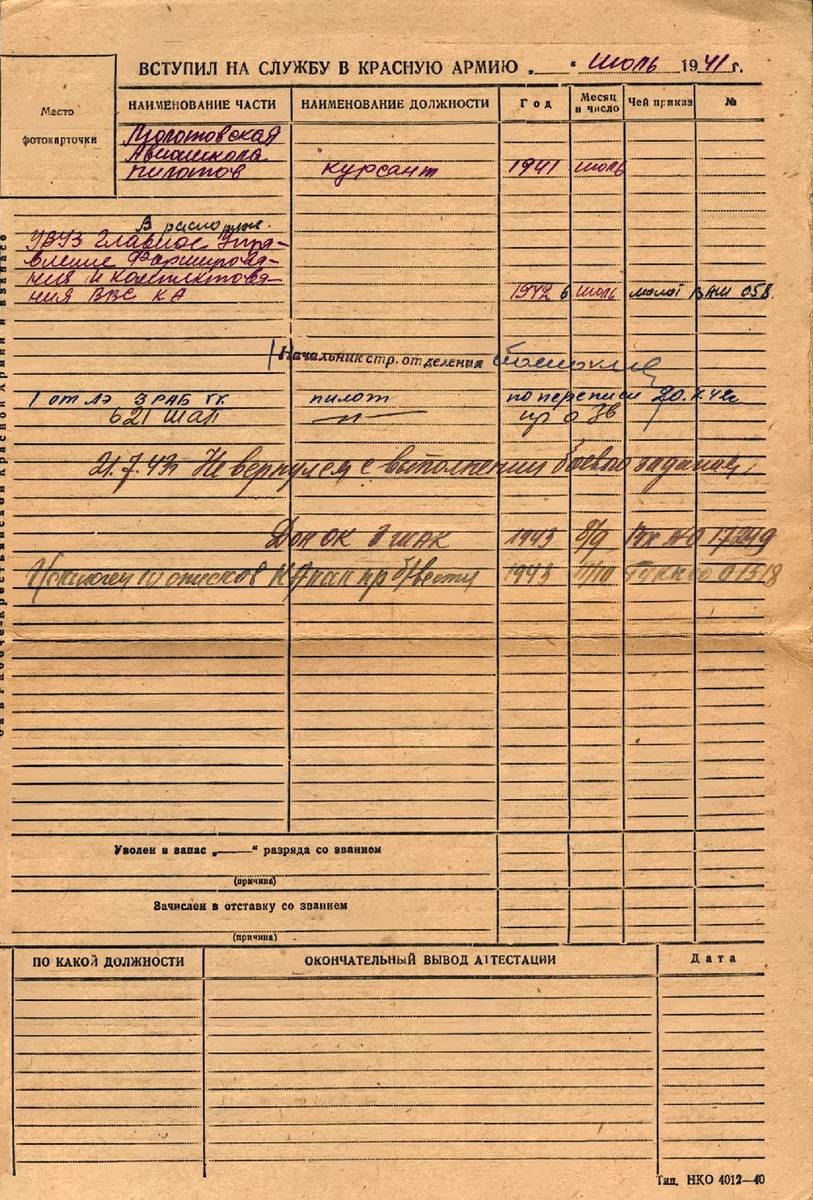 ВСТУПИЛ НА СЛУЖБУ В КРАСНУЮ АРМИЮ „ “ июль 1941 г.
Место
фотокарточки
НАИМЕНОВАНИЕ ЧАСТИ НАИМЕНОВАНИЕ ДОЛЖНОСТИ Год Месяц и число Чей приказ №
Молотовская
Авиашкола
пилотов курсант 1941 июль
В распоряж.
УВУЗ Главное Упра-
вление Формирова-
ния и комплектова-
ния ВВС КА 1942 6 июль молот ВАШ 058.
Начальник стр. отделения
1 отлэ 3 РАБ ТК пилот по переписи 20.X.42г
621 шап —"— пр 038
21.7.43г Не вернулся с выполнения боевого задания.
Дон ОК 3 шак 1943 8/9
Исключен из списков КА как пр б/вести 1943 01518
Уволен в запас „ “ разряда со званием
(причина)
Зачислен в отставку со званием
(причина)
ПО КАКОЙ ДОЛЖНОСТИ ОКОНЧАТЕЛЬНЫЙ ВЫВОД АТТЕСТАЦИИ Дата
Тип. НКО 4012—40